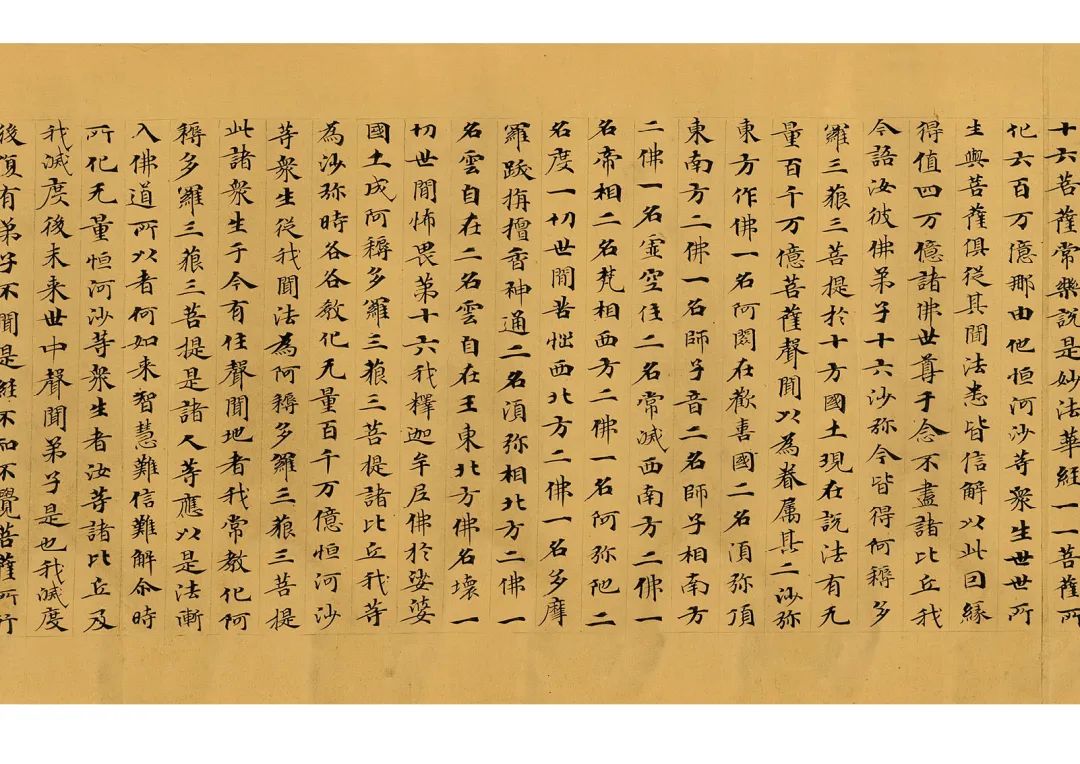 十六菩薩常樂說是妙法華經一一菩薩所
化六百万億那由他恒河沙等衆生世世所
生與菩薩俱從其聞法悉皆信解以此因緣
得值四万億諸佛世尊于念不盡諸比丘我
今語汝彼佛弟子十六沙弥今皆得阿耨多
羅三藐三菩提於十方國土現在說法有无
量百千万億菩薩聲聞以為眷属其二沙弥
東方作佛一名阿閦在歡喜國二名須弥頂
東南方二佛一名師子音二名師子相南方
二佛一名虛空住二名常滅西南方二佛一
名帝相二名梵相西方二佛一名阿弥陁二
名度一切世間苦惱西北方二佛一名多摩
羅跋栴檀香神通二名須弥相北方二佛一
名雲自在二名雲自在王東北方佛名壞一
切世間怖畏第十六我釋迦牟尼佛於娑婆
國土成阿耨多羅三藐三菩提諸比丘我等
為沙弥時各各教化无量百千万億恒河沙
等衆生從我聞法為阿耨多羅三藐三菩提
此諸衆生于今有住聲聞地者我常教化阿
耨多羅三藐三菩提是諸人等應以是法漸
入佛道所以者何如来智慧難信難解尒時
所化无量恒河沙等衆生者汝等諸比丘及
我滅度後未来世中聲聞弟子是也我滅度
後復有弟子不聞是經不知不覺菩薩所行